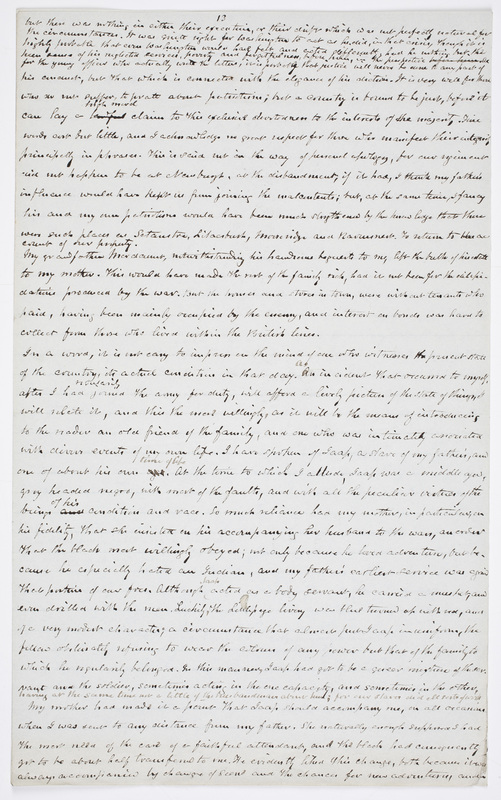 13
but there was nothing in either their execution, or their drift which was not perfectly natural for
the circumstances. It was quite right for Washington to act as he did, in that crisis, though it is
highly probable that even Washington would have felt and acted differently, had he nothing but the
for the young officers who actually wrote the letters, I will
his conduct, but that which is connected with the elegance of his diction. It is very well for those
who do not suffer, to prate about patriotism; but a country is bound to be just, before it
can lay a high moral claim to this exclusive devotedness to the interests of the majority. Fine
words cost but little, and I acknowledge no great respect for those who manifest their integrity
principally in phrases. This is said not in the way of personal apology, for our regiment
did not happen to be at Newburgh, at the disbandment; if it had, I think my father's
influence would have kept us from joining the malcontents; but, at the same time, I fancy
his and my own patriotism would have been much strengthened by the knowledge that there
were such places as Satanstoe, Lilacsbush, Mooseridge and Ravensnest. To return to the
account of our property.
My grandfather Mordaunt, notwithstanding his handsome bequests to me, left the bulk of his estate
to my mother. This would have made the rest of the family rich, had it not been for the dilapi-
dations produced by the war. But the houses and stores in town, were without tenants who
paid, having been mainly occupied by the enemy, and interest on bonds was hard to
collect from those who lived within the British lines.
In a word, it is not easy to impress on the mind of one who witnesses the present state
of the country, its actual condition in that day. As an incident that occurred to myself,
after I had regularly joined the army for duty, will afford a lively picture of the state of things, I
will relate it, and this the more willingly, as it will be the means of introducing
to the reader an old friend of the family, and one who was intimately associated
with divers events of my own life. I have spoken of Jaap, a slave of my father's, and
one of about his own time of life. At the time to which I allude, Jaap was a middle-aged,
grey headed negro, with most of the faults, and with all the peculiar virtues of the
beings of his condition and race. So much reliance had my mother, in particular, on
his fidelity, that she insisted on his accompanying her husband to the wars, an order
that the black most willingly obeyed; not only because he loved adventure, but be-
cause he especially hated an Indian, and my father's earliest service was against
that portion of our foes. Although Jaap acted as a body servant, he carried a musket, and
even drilled with the men. Luckily, the Littlepage livery was blue turned up with red, and
of a very modest character; a circumstance that almost put Jaap in uniform, the
fellow obstinately refusing to wear the colours of any power but that of the family to
which he regularly belonged. In this manner, Jaap had got to be a queer mixture of the ser-
vant and the soldier, sometimes acting in the one capacity, and sometimes in the other,
having at the same time not a little of the husbandman about him; for our slaves did all sorts of work.
My mother had made it a point that Jaap should accompany me, on all occasions
when I was sent to any distance from my father. She naturally enough supposed I had
the most need of the care of a faithful attendant, and the black had consequently
got to be about half transferred to me. He evidently liked this change, both because it was
always accompanied by change of scene and the chances for new adventures, and